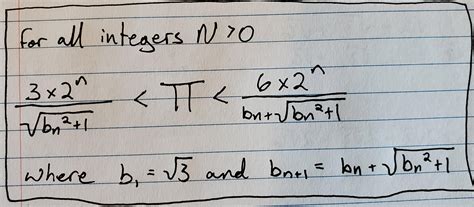 for all integers N>0
3×2^n / √(bn²+1) < π < 6×2^n / (bn+√(bn²+1))
where b₁ = √3 and bn+1 = bn + √(bn²+1)